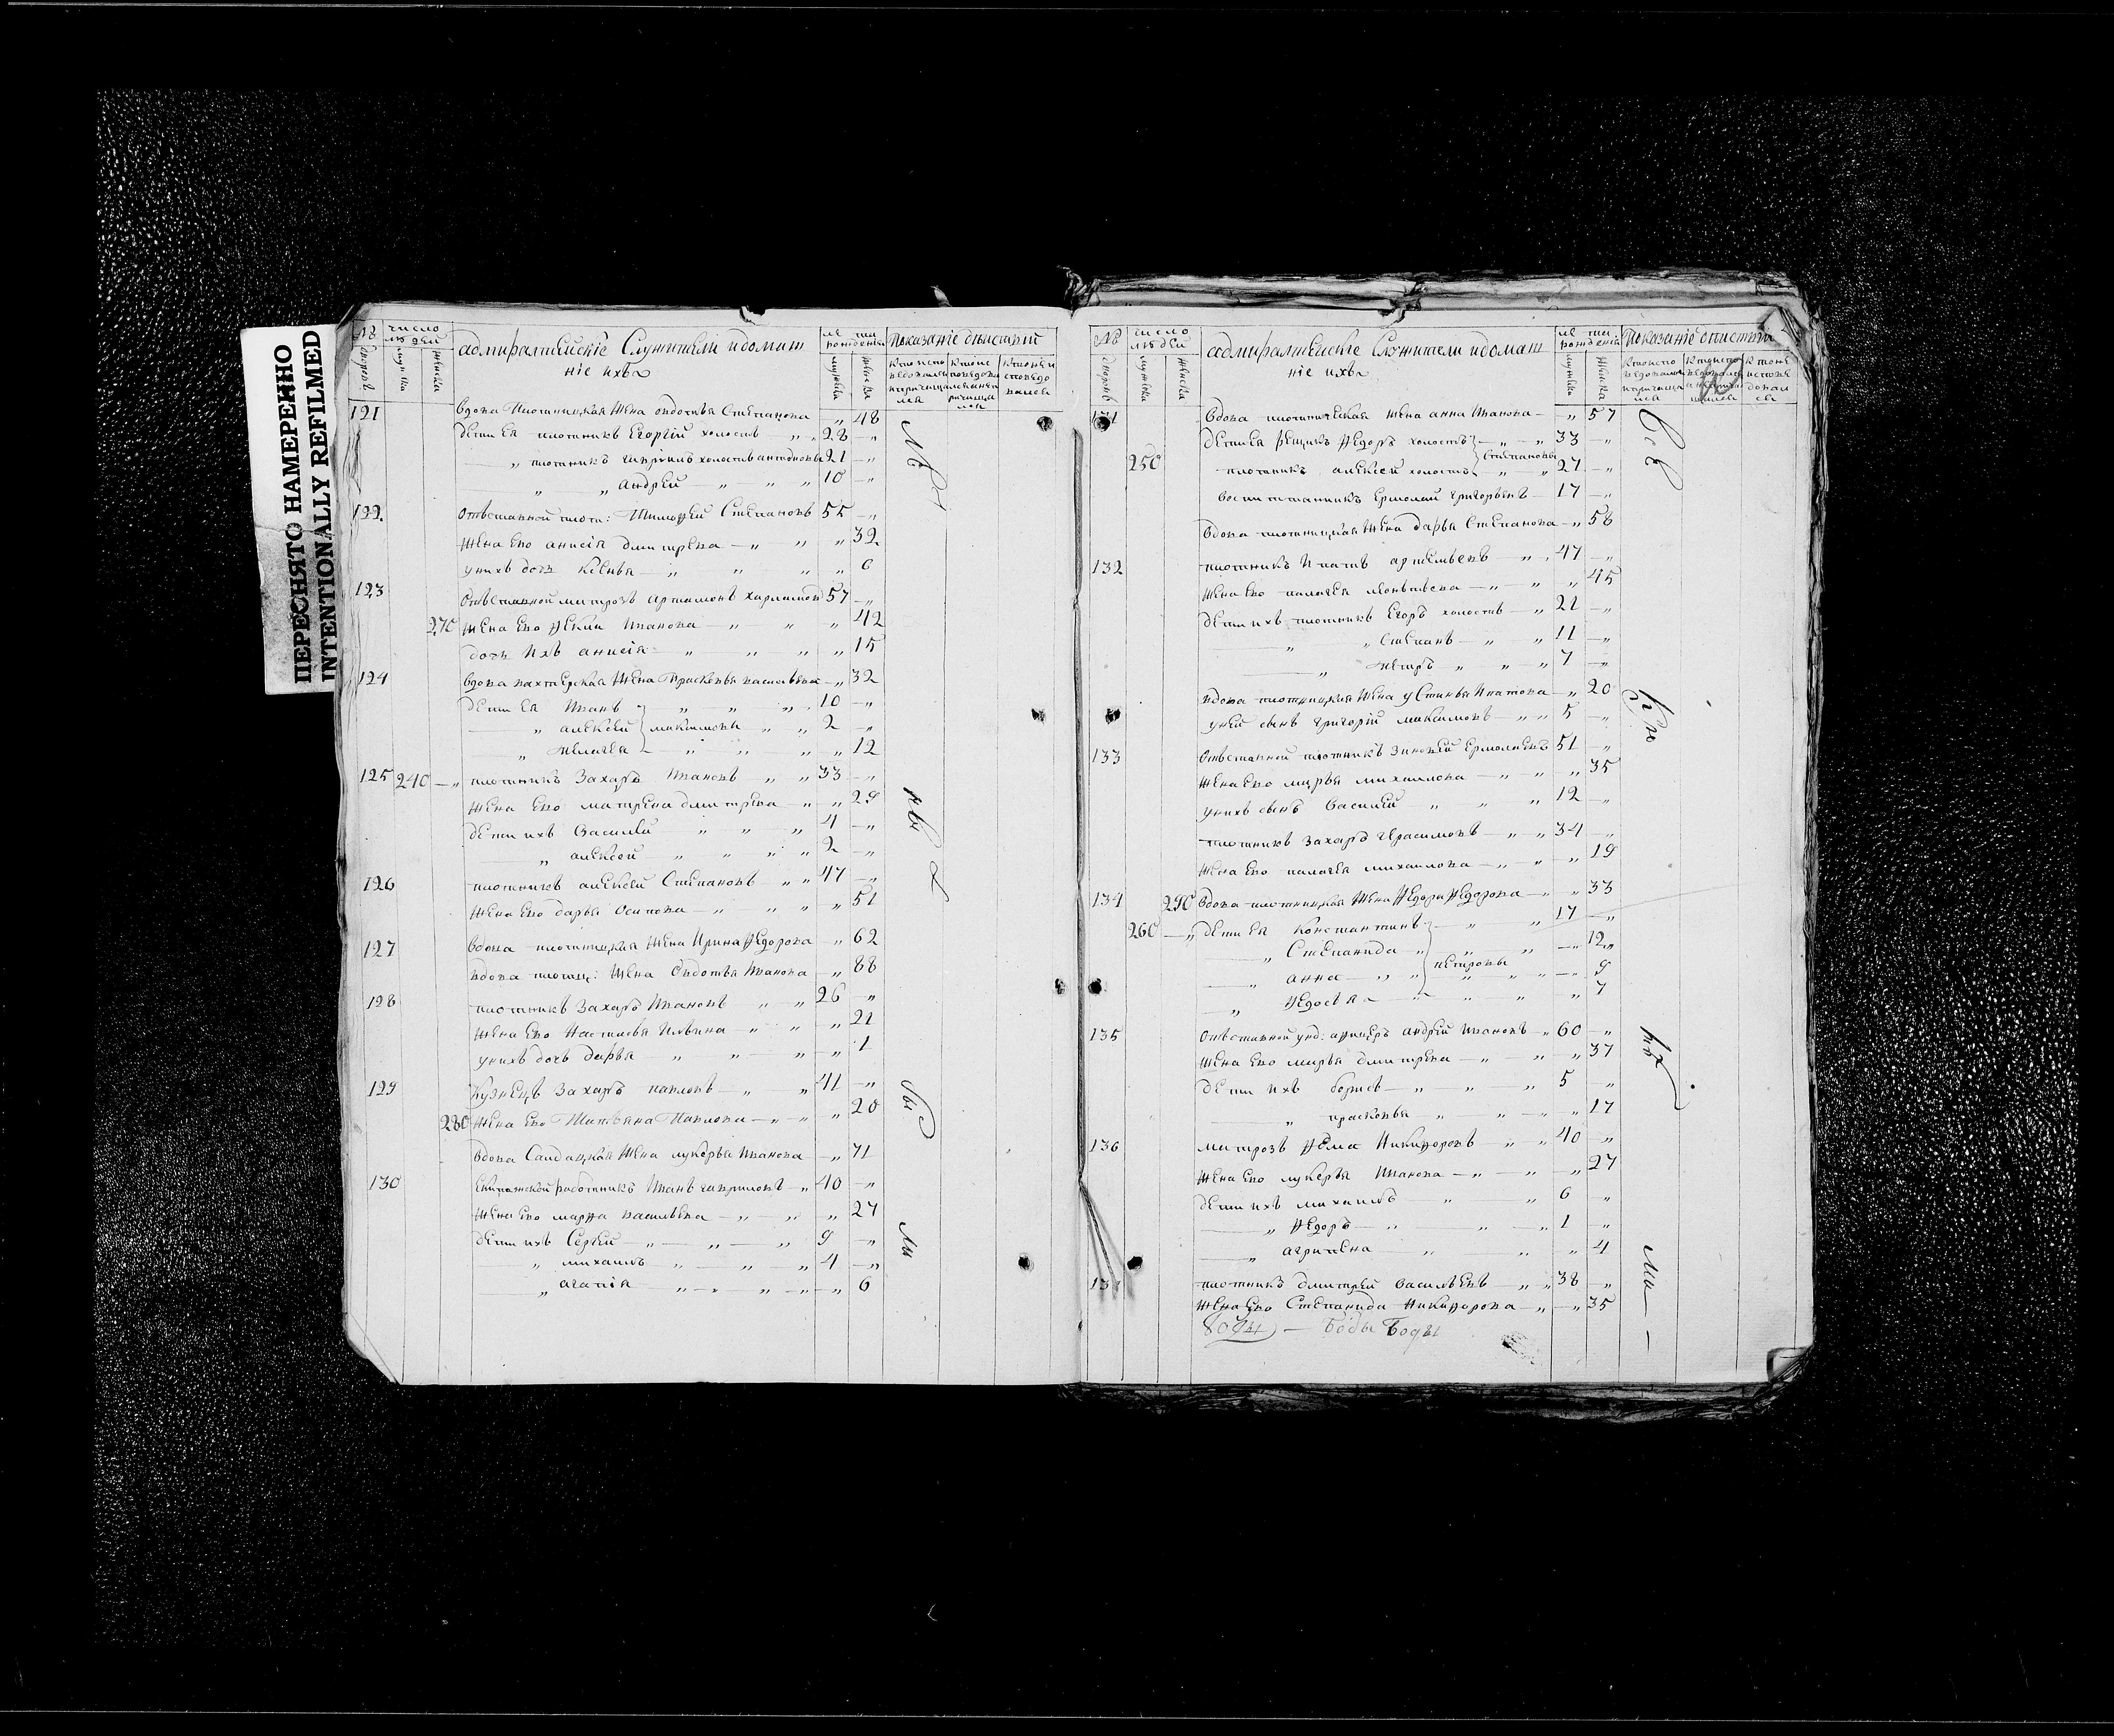 ПЕРЕСНЯТО НАМЕРЕННО
INTENTIONALLY REFILMED
№ число людей адмиралтейскіе Служители идомаш ніе ихъ лѣ та рожденія Показаніе бытности
121 Вдова Плотницкая жена овдотья Степанова „ 48
дети ея плотникъ Егоргій холостъ „ 28 „
„ плотникъ Гаврилъ холостъ антоновы 21 „
„ „ Андрей „ „ 10 „
122. Отставной плотн: Тимофей Степановъ 55 „
жена ево анисія дмитрева „ „ 32
унихъ дочь Ксенья „ „ 6
123 Отставной матрозъ артамонъ харламовъ 57 „
270 жена ево Фекла Иванова „ „ 42
дочь Ихъ анисія „ „ 15
124 Вдова вахтерская жена Прасковья васильева „ 32
дети ея Иванъ „ „ 10 „
„ алексей максимовы „ „ 2 „
„ Пелагея „ „ 12
125 240 плотникъ Захаръ Ивановъ „ „ 33 „
жена ево матрена дмитрева „ „ 29
дети ихъ Василей „ „ 4 „
„ алексей „ „ 2 „
126 плотникъ алексей Степановъ „ „ 47 „
жена ево дарья Осипова „ „ 51
127 Вдова плотницкая жена Ирина Федорова „ 62
вдова плотниц: жена Овдотья Иванова „ 88
128 плотникъ Захаръ Ивановъ „ „ 26 „
жена ево Настасья Ильина „ „ 21
унихъ дочь дарья „ „ 1
129 Кузнецъ Захаръ павловъ „ „ 41 „
280 жена ево Татьяна Павлова „ „ 20
Вдова Салдацкая жена лукерья Иванова „ 71
130 Екипажской работникъ Иванъ гавриловъ „ 40 „
жена ево марфа васильева „ „ 27
дети ихъ Сергей „ „ 9 „
„ михаилъ „ „ 4 „
„ агапія „ „ 6
№ число людей адмиралтейскіе Служители идомаш ніе ихъ лѣ та рожденія Показаніе
131 Вдова плотническая жена анна Иванова „ 57
дети ея Федоръ холостъ „ „ 33 „
250 плотникъ алексей холостъ Степановы „ 27 „
воспитанникъ Ермолай григорьевъ 17 „
Вдова плотницкая жена дарья Степанова „ 58
132 плотникъ Ипатъ артемьевъ „ 47 „
жена ево палагея леонтьева „ „ 45
дети ихъ плотникъ Егоръ холостъ „ 21 „
„ Степанъ „ „ 11 „
„ Петръ „ „ 7 „
вдова плотницкая жена устинья Ипатова „ 20
уней сынъ григорій максимовъ „ 5 „
133 Отставной плотникъ Зиновей Ермолаевъ 51 „
жена ево марья михаилова „ „ 35
унихъ сынъ Василей „ „ 12 „
плотникъ Захаръ герасимовъ „ „ 34 „
жена ево палагея михаилова „ „ 19
134 290 Вдова плотницкая жена Федора Федорова „ 33
260 дети ея Константинъ „ 17 „
„ Степанида „ „ 12
„ анна петровы „ „ 9
„ Федосья „ „ 7
135 Отставной унд: афицеръ андрей Ивановъ „ 60 „
жена ево марья дмитрева „ „ 37
дети ихъ борисъ „ „ 5 „
„ прасковья „ „ 17
136 матрозъ Фома Никифоровъ „ „ 40 „
жена ево лукерья Иванова „ „ 27
дети ихъ михаилъ „ „ 6 „
„ Федоръ „ „ 1 „
„ агрипена „ „ 4
плотникъ дмитрей васильевъ „ „ 38 „
жена ево Степанида Никифорова „ „ 35